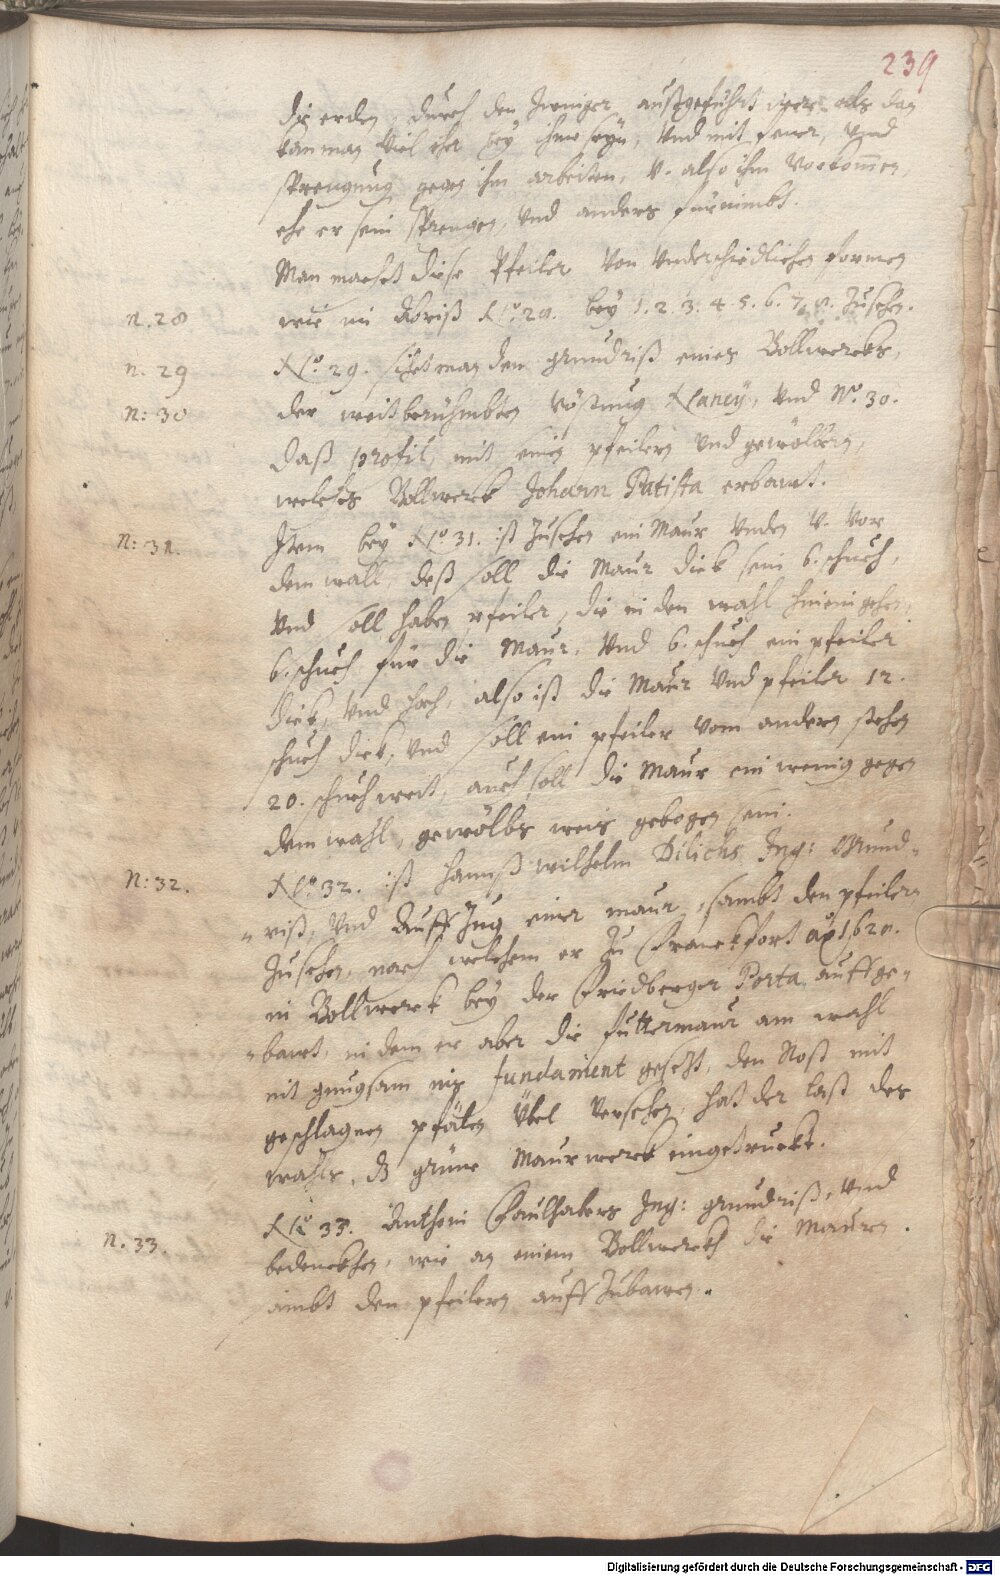 239
die erden, durch den Zwinger außgeführt wer. als dan
kan man viel eher bey ihm seyn, Vnd mit feuer, Vnd
sprengung gegen ihm arbeiten, v. also ihm vorkom̄en,
ehe er sein sprengen, Vnd anders fürnimbt.
Man machet diese Pfeiler von Vnderschiedlichen formen
n. 28
wie im Abriß No. 28. bey 1. 2. 3. 4. 5. 6. 7. 8. Zusehen.
n. 29
No. 29. sihet man den grundriß eines Bollwercks,
n: 30
der weitberühmbten Vöstung Nancÿ, Vnd No. 30.
Daß profil, mit seinen pfeilern Vnd gewölben,
welches Bollwerck Johann Patista erbawt.
n: 31.
Item bey No 31. ist Zusehen ein Maur Vnden v. vor
dem wall, deß soll die Maur dick sein 6. schuch,
Vnd soll haben pfeiler, die in den wahl hinein gehen,
6. schuch für die Maur, Vnd 6. schuch ein pfeiler
dick, Vnd hoch, also ist die Maur Vnd pfeiler 12.
schuch dick, Vnd soll ein pfeiler vom andern stehen
20. schuch weit, auch soll die Maur ein wenig gegen
dem wahl, gewölbs weis gebogen sein.
n: 32.
No. 32. ist Hannß Wilhelm Dilichs Ing: Grund-
-riß, Vnd Auff Zug einer maur, sambt den pfeilern
Zusehen, nach welchem er Zu Franckfort
in Bollwerck bey der Friedberger Porta auffge-
-bawt, in dem er aber die futtermaur am wahl
nit gnugsam ins fundament gesetzt, den Rost mit
geschlagnen pfälen Übel versehen, hat der last des
wahls, dz grüne Maurwerck eingetruckt.
n. 33.
No 33. Anthoni Faulhabers Ing: grundriß, Vnd
bedencken, wie an einem Bollwerck die Mauren
sambt den pfeilern auff Zubawen.
Digitalisierung gefördert durch die Deutsche Forschungsgemeinschaft - DFG